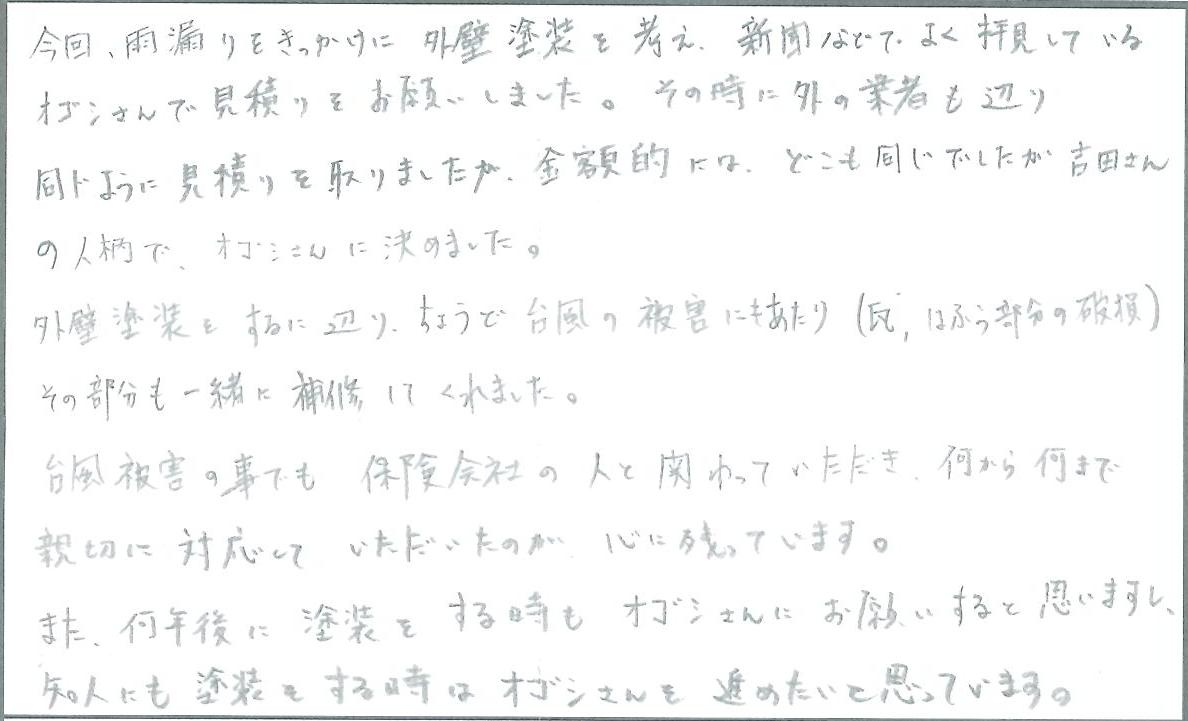 今回、雨漏りをきっかけに 外壁塗装を考え、新聞などで、よく拝見している
オゴシさんで見積りをお願いしました。その時に外の業者も辺り
同じように見積りを取りましたが、金額的には、どこも同じでしたが吉田さん
の人柄で、オゴシさんに決めました。
外壁塗装をするに辺り、ちょうど台風の被害にもあたり(瓦,はふう部分の破損)
その部分も一緒に補修してくれました。
台風被害の事でも 保険会社の人と関わっていただき、何から何まで
親切に対応して いただいたのが 心に残っています。
また、何年後に 塗装をする時も オゴシさんにお願いすると思いますし、
知人にも塗装をする時はオゴシさんを進めたいと思っています。